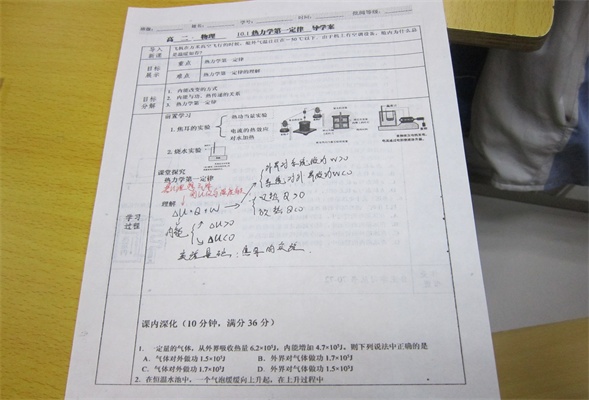 班级: 姓名: 学号: 时间: 班周等级:
高 二 、 物理 10.1 热力学第一定律 导学案
导入新课 飞机在万米高空飞行的时候，舱外气温往往在－50℃以下，由于机上有空调设备，舱内为什么总是温暖如春?
目标展示 重点 热力学第一定律
难点 热力学第一定律的理解
目标分解 1. 内能改变的方式
2. 内能与功、热传递的关系
3. 热力学第一定律
学习过程
前置学习
1. 焦耳的实验 热功当量实验
电流的热效应对水加热
2. 烧水实验
课堂探究
热力学第一定律
理解 ΔU=Q+W
外界对系统做功 W>0
系统对外界做功 W<0
吸热 Q>0
放热 Q<0
内能 ΔU>0
ΔU<0
课内深化（10 分钟，满分 36 分）
1. 一定量的气体，从外界吸收热量 6.2×10⁵J，内能增加 4.7×10⁵J。则下列说法中正确的是
A．气体对外做功 1.5×10⁵J B．外界对气体做功 1.7×10⁵J
C．气体对外做功 1.7×10⁵J D．外界对气体做功 1.5×10⁵J
2. 在恒温水池中，一个气泡缓缓向上升起，在上升过程中